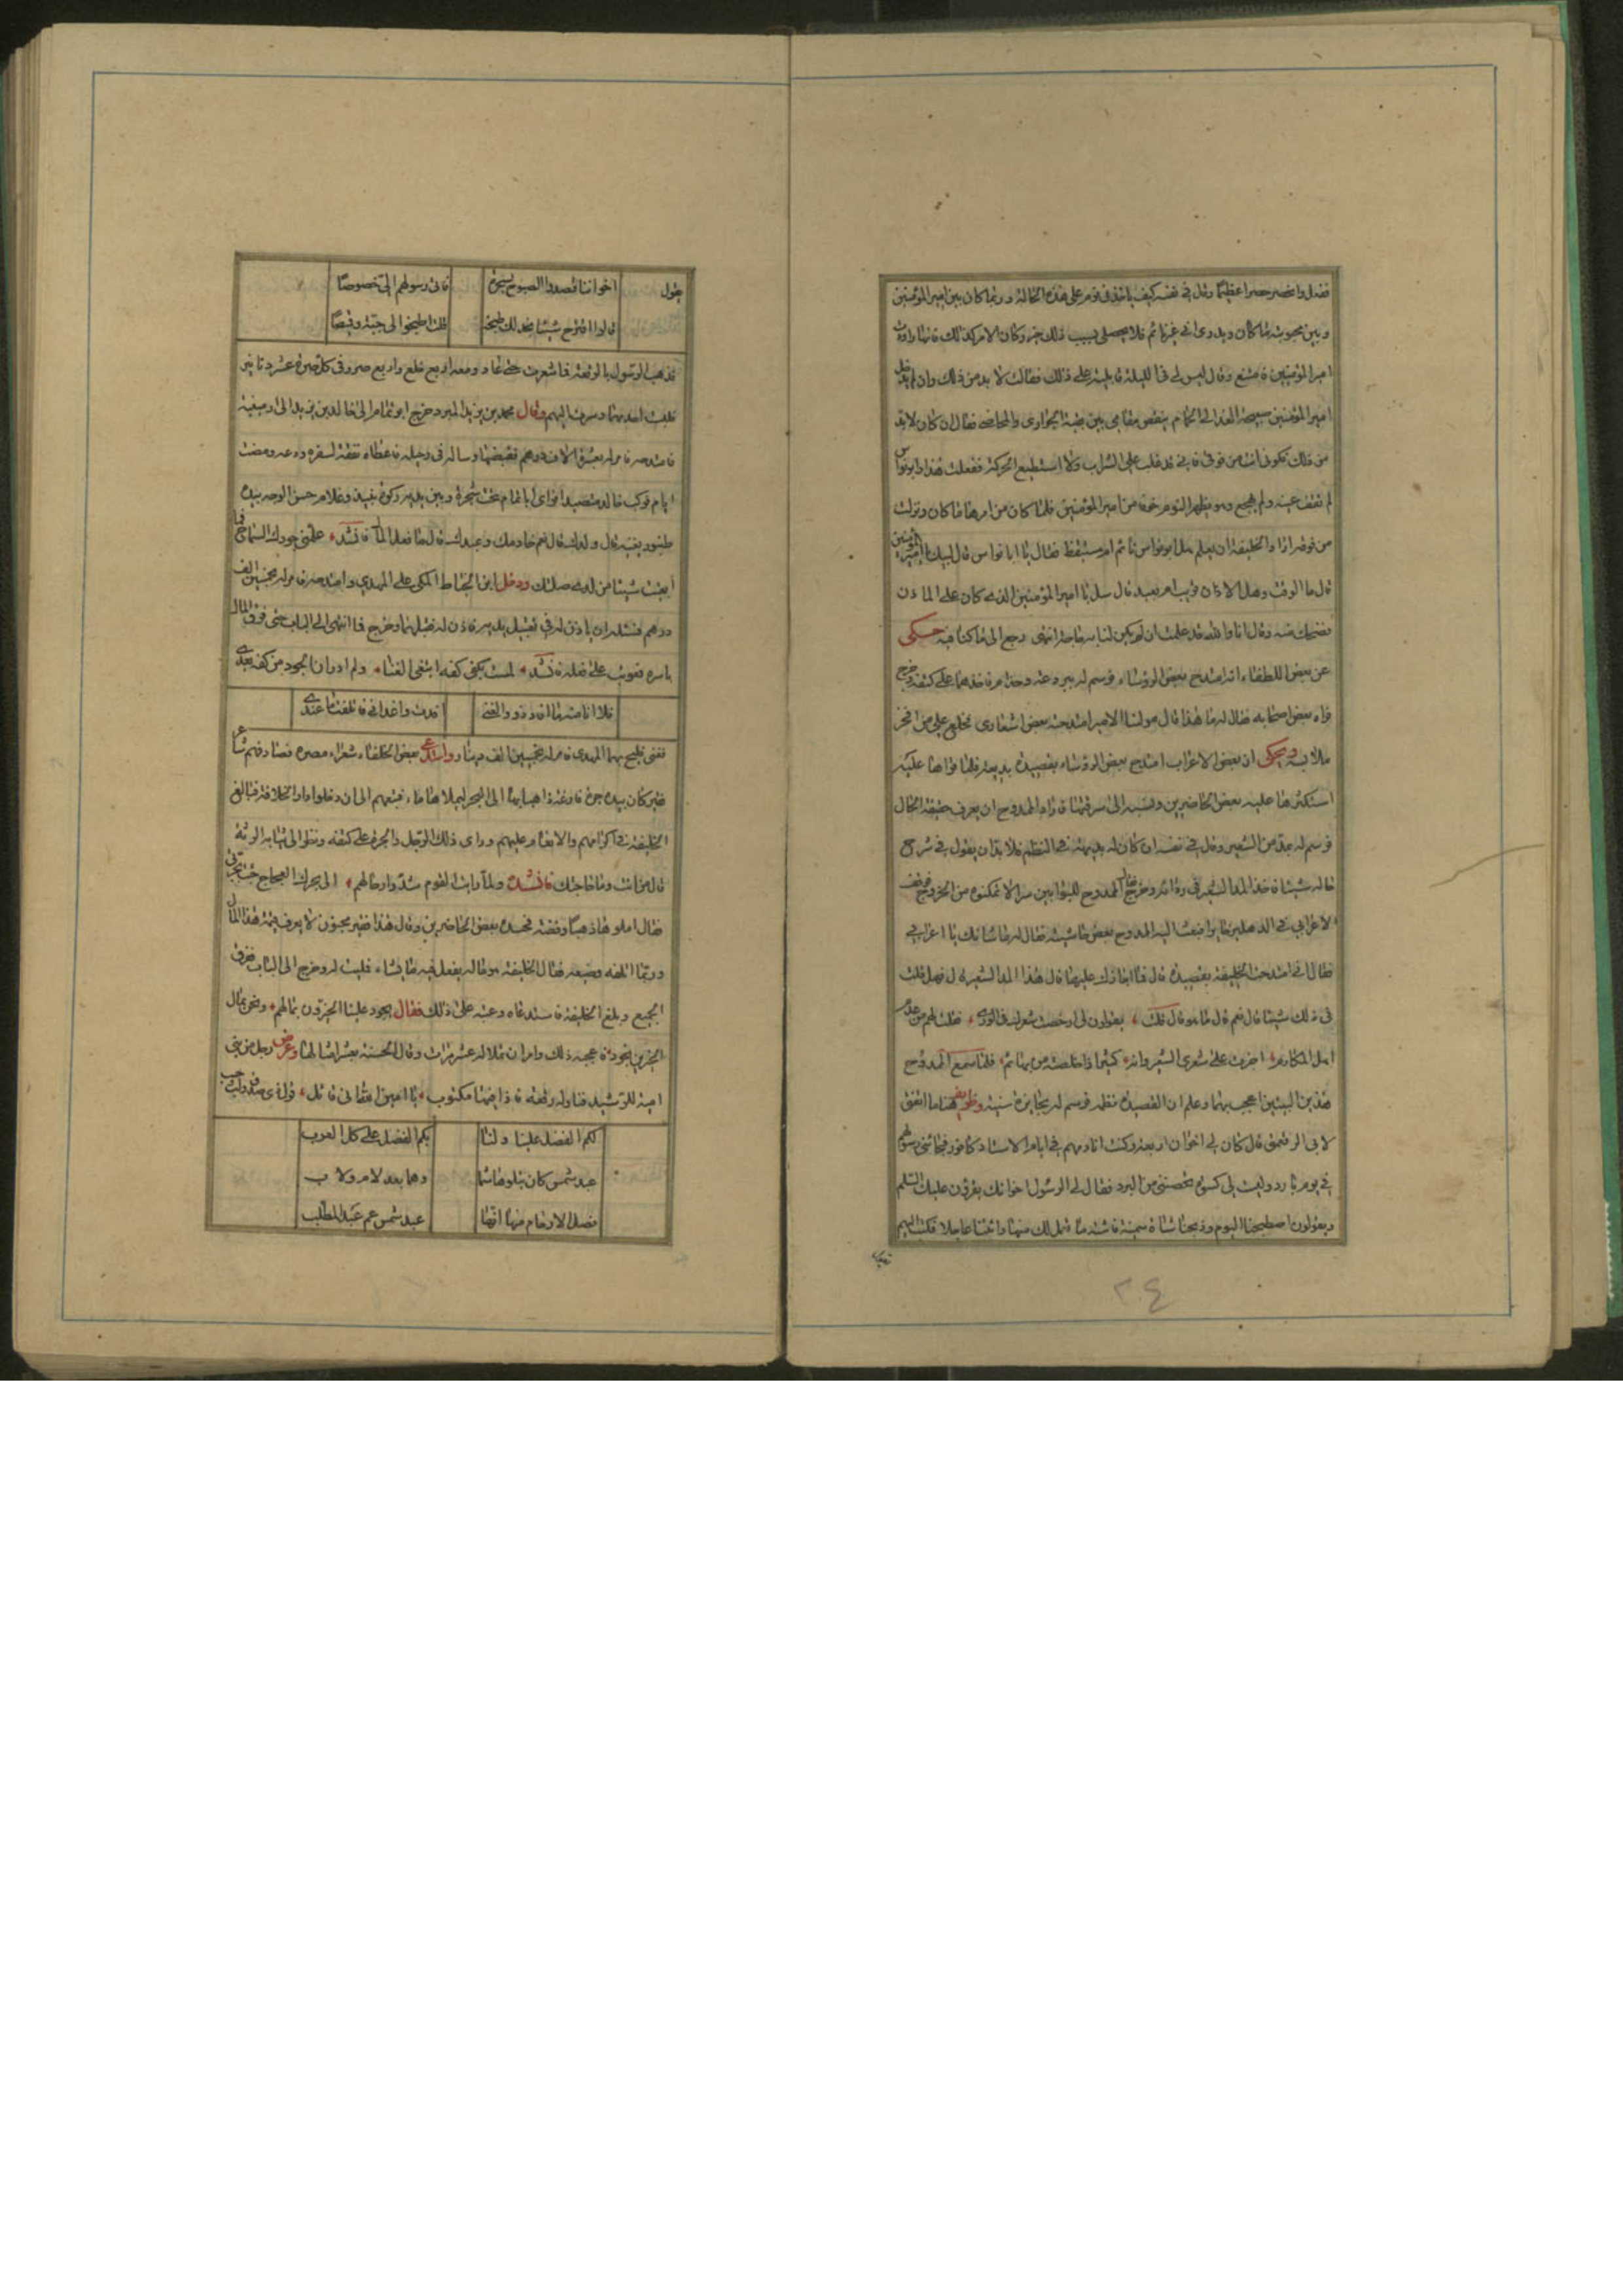 فضل وانحصر حصرا عظيما وقال في نفسه كيف ياخذني نوم على هذه الحالة وربما كان بين امير المؤمنين
وبين محبوبته ما كان ويدري اني غير نائم فلا يحصل بسبب ذلك خير وكان الامر كذلك فانها راودت
امير المؤمنين فامتنع وقال ليس لي في الليلة قابلية على ذلك فقالت لا بد من ذلك وان لم يدخل
امير المؤمنين صبيحة الغد الى الحمام ينقص مقامي بين بقية الجواري والمحاضي فقال ان كان لا بد
من ذلك تكوني انت من فوقي فاني قد غلب علي الشراب ولا استطيع الحركة ففعلت هذا وابو نواس
لم تغف عينه ولم يهجع وهو يظهر النوم خوفا من امير المؤمنين فلما كان من امرها ما كان ونزلت
من فوقه اراد الخليفة ان يعلم هل ابو نواس نائم ام مستيقظ فقال يا ابا نواس قال لبيك يا امير المؤمنين
قال ما الوقت وهل الاذان قريب ام بعيد قال سل يا امير المؤمنين الذي كان على الماذن
فضحك منه وقال انا والله قد علمت ان لم يكن لنا به حاجة انتهى رجع الى ما كنا فيه حكى
عن بعض اللطفاء انه امتدح بعض الرؤساء فرسم له ببردعة وحزام فاخذهما على كتفه وخرج
فراه بعض اصحابه فقال له ما هذا قال مولانا الامير امتدحته ببعض اشعاري فخلع علي من افخر
ملابسه وحكى ان بعض الاعراب امتدح بعض الرؤساء بقصيدة بديعة فلما قراها عليه
استكثرها عليه بعض الحاضرين ونسبه الى سرقتها فاراد الممدوح ان يعرف حقيقة الحال
فرسم له بمد من الشعير وقال في نفسه ان كان له بديهة في النظم فلا بد ان يقول في شرح
حاله شيئا فاخذ المد الشعير في ردائه وخرج فقال الممدوح للبوابين سرا لا تمكنوه من الخروج فوقف
الاعرابي في الدهليز حايرا فبعث اليه الممدوح بعض حاشيته فقال له ما شانك يا اعرابي
فقال اني امتدحت الخليفة بقصيدة قال فما اجازك عليها قال هذا المد الشعير قال فهل قلت
في ذلك شيئا قال نعم قال ما هو قال قلت، يقولون لي ارخصت شعرك في الورى، فقلت لهم من عدم
اهل المكارم، اجزت على شعري الشعير وانه، كثير اذا خلصته من بهائم، فلما سمع الممدوح
هذين البيتين اعجب بهما وعلم ان القصيدة نظمه فرسم له بجايزة سنية وظريف هنا ما اتفق
لابي الرقعمق قال كان لي اخوان اربعة وكنت انادمهم في ايام الاستاد كافور فجائني رسولهم
في يوم بارد وليس لي كسوة تحصنني من البرد فقال لي الرسول اخوانك يقرؤن عليك السلام
ويقولون اصطبحنا اليوم وذبحنا شاة سمينة فاشته ما نعمل لك منها وائتنا عاجلا فكتبت اليهم
٢٤
يقول اخواننا قصدوا الصبوح بسحرة فاتى رسولهم الي خصوصا
قالوا اقترح شيئا نجد لك طبخه قلت اطبخوا لي جبة وقميصا
فذهب الرسول بالرقعة فما شعرت حتى عاد ومعه اربع خلع واربع صرر في كل صرة عشرة دنانير
فلبست احدها وسرت اليهم وقال محمد بن يزيد المبرد خرج ابو تمام الى خالد بن يزيد الى ارمينية
فامتدحه فامر له بعشرة الاف درهم فقبضها وساله في رحيله فاعطاه نفقة لسفره ودعه ومضت
ايام فركب خالد متصيدا فراى ابا تمام تحت شجرة وبين يديه زكوة نبيذ وغلام حسن الوجه بيده
طنبور يغنيه قال ولدك قال نعم خادمك وعبدك قال ما فعل المال فانشد، علمني جودك السماح فما
ابقيت شيئا من لدي صلتك ودخل ابن الخياط المكي على المهدي وامتدحه فامر له بخمسين الف
درهم فسئله ان ياذن له في تقبيل يديه فاذن له فقبلهما وخرج فما انتهى الى الباب حتى فرق المال
باسره فعوتب على فعله فانشد، لمست بكفي كفه ابتغي الغنى، ولم ادر ان الجود من كفه يعدي
فلا انا منه ما افاد ذوو الغنى افدت واعداني فاتلفت ما عندي
فغنى بهما المهدي فامر له بخمسين الف دينار واستدعى بعض الخلفاء شعراء مصره فصادفهم شاعر
فقير كان بيده جرة فارغة ذاهبا بها الى البحر ليملاها ماء فتبعهم الى ان دخلوا دار الخلافة فبالغ
الخليفة في اكرامهم والانعام عليهم وراى ذلك الرجل والجرة على كتفه ونظر الى ثيابه الرثة
قال من انت وما حاجتك فانشده ولما رايت القوم شدوا رحالهم، الى بحرك العجاج جئت بجرتي
فقال املوها ذهبا وفضة فحسده بعض الحاضرين وقال هذا فقير مجنون لا يعرف قيمة هذا المال
وربما اتلفه وضيعه فقال الخليفة هو ماله يفعل فيه ما يشاء فمليت له وخرج الى الباب ففرق
الجميع وبلغ الخليفة فاستدعاه وعتبه على ذلك فقال يجود علينا الخيرون بمالهم، ونحن بمال
الخيرين نجود فاعجبه ذلك وامر ان تملا له عشر مرات وقال الحسنة بعشر امثالها وعرض رجل من بني
امية للرشيد فناوله رقعة فاذا فيها مكتوب، يا امين الله اني قائل، قول ذي صدق ولب وحسب
لكم الفضل علينا ولنا بكم الفضل على كل العرب
عبد شمس كان يتلو هاشما وهما بعد لام ولاب
فصل الارحام منا انما عبد شمس عم عبد المطلب